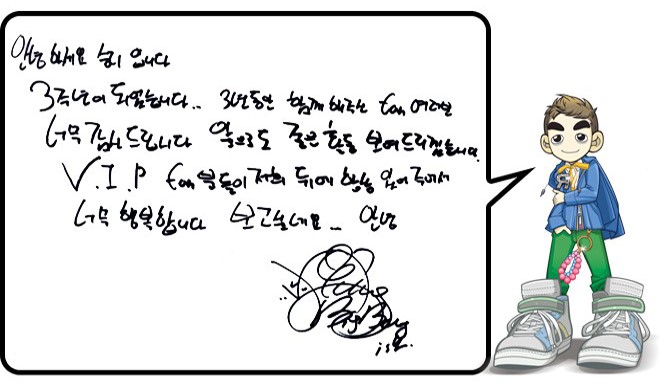 안녕하세요 승리 입니다
3주년이 되었습니다.. 3년동안 함께 해주신 fan 여러분
너무 감사드립니다 앞으로도 좋은 활동 보여드리겠습니다.
V.I.P fan분들이 저희 뒤에 항상 있어주셔서
너무 행복합니다 보고싶네요... 안녕
Big Bang
is V.